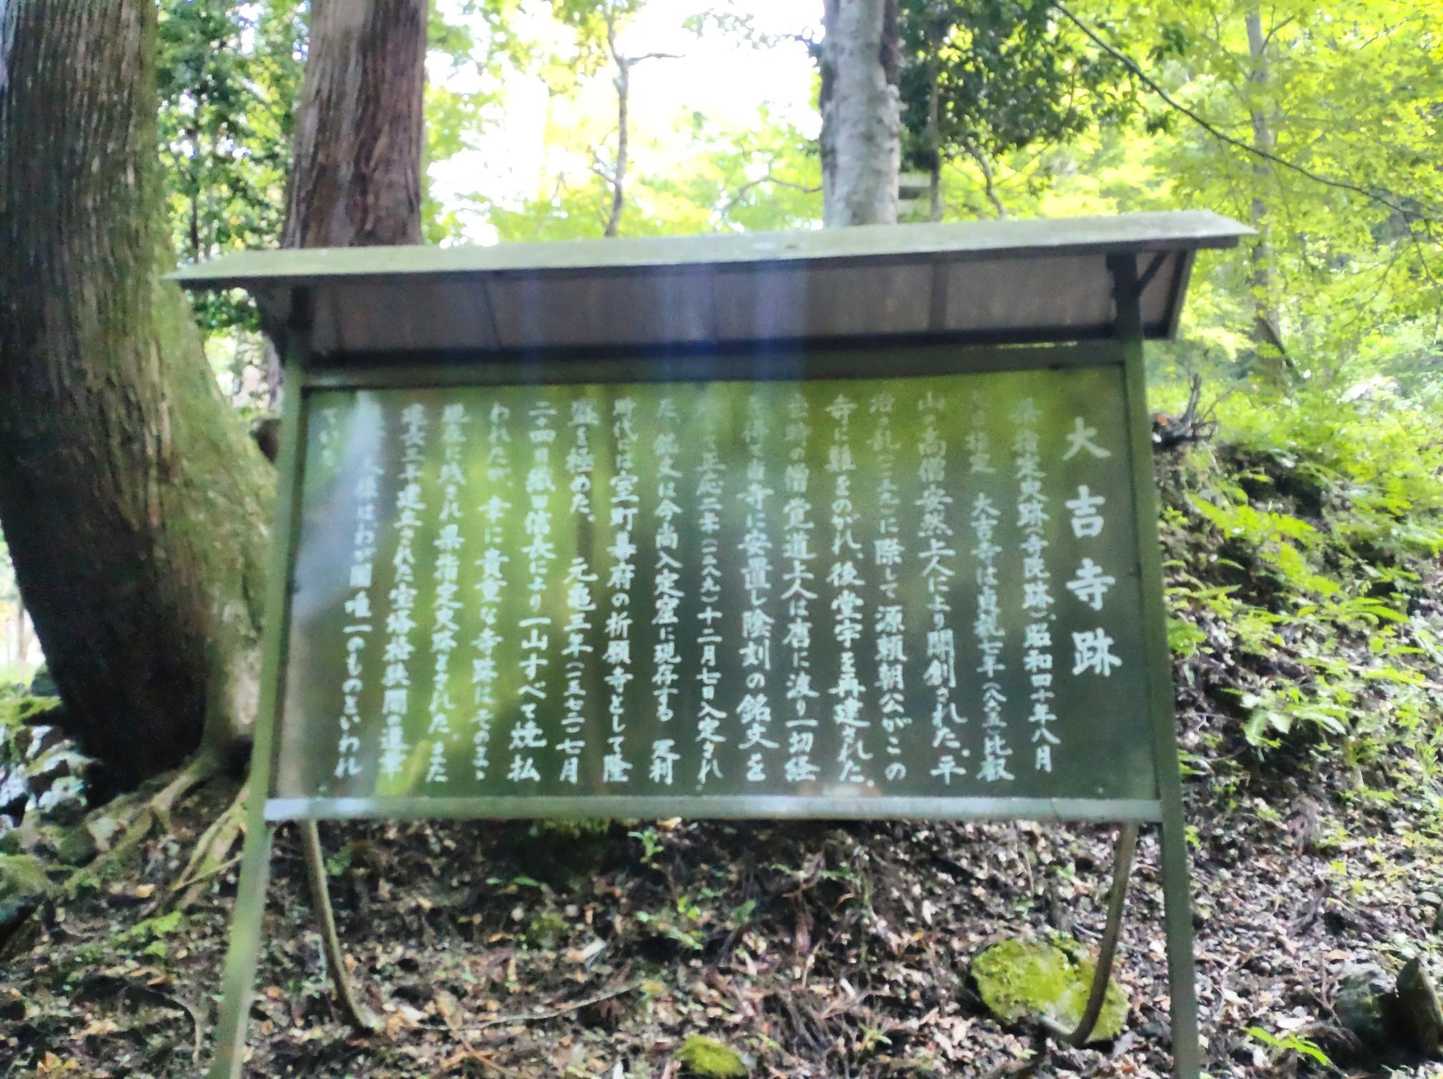 大吉寺跡
県指定史跡(寺院跡)、昭和四十年八月
指定 大吉寺は貞観七年(八六五)比叡
山の高僧安然上人により開創された。平
治の乱(一一五九)に際して源頼朝公がこの
寺に難をのがれ、後堂宇を再建された。
の僧の覚道上人は唐に渡り一切経
当寺に安置し陰刻の銘文を
正応二年(一二八九)十二月七日入定され
た。銘文は今尚入定窟に現存する 足利
時代は室町幕府の祈願寺として隆
盛を極めた。 元亀三年(一五七二)七月
二十四日織田信長により一山すべて焼払
われたが、幸に貴重な寺跡はそのまゝ
現在に残され県指定史跡とされた。また
建長三年建立された宝塔格狭間の
はわが国唯一のものといわれ
ている